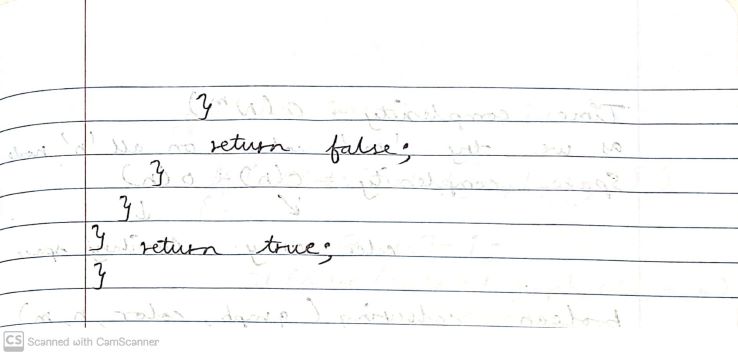 }
return false;
}
}
} return true;
}
CS Scanned with CamScanner